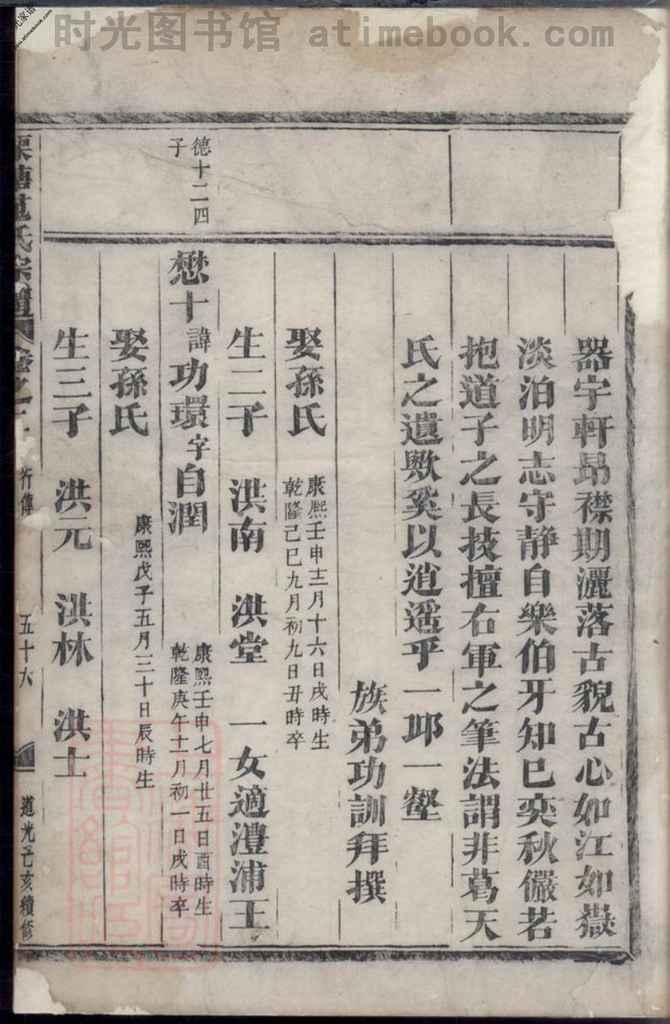 时光图书馆 atimebook.com
器宇軒昂襟期灑落古貌古心如江如嶽
淡泊明志守静自樂伯牙知己奕秋儼若
抱道子之長技擅右軍之筆法謂非葛天
氏之遺歟奚以逍遥乎一邱一壑
族弟功訓拜撰
娶孫氏
康熙壬申十二月十六日戌時生
乾隆己巳九月初九日丑時卒
生二子 洪南 洪堂 一女適澧浦王
德十二四
子
懋十諱功環字自潤
康熙壬申七月廿五日酉時生
乾隆庚午十一月初一日戌時卒
娶孫氏
康熙戊子五月三十日辰時生
生三子 洪元 洪林 洪士
氏宗譜 卷之 行傳 五十六 道光己亥續修